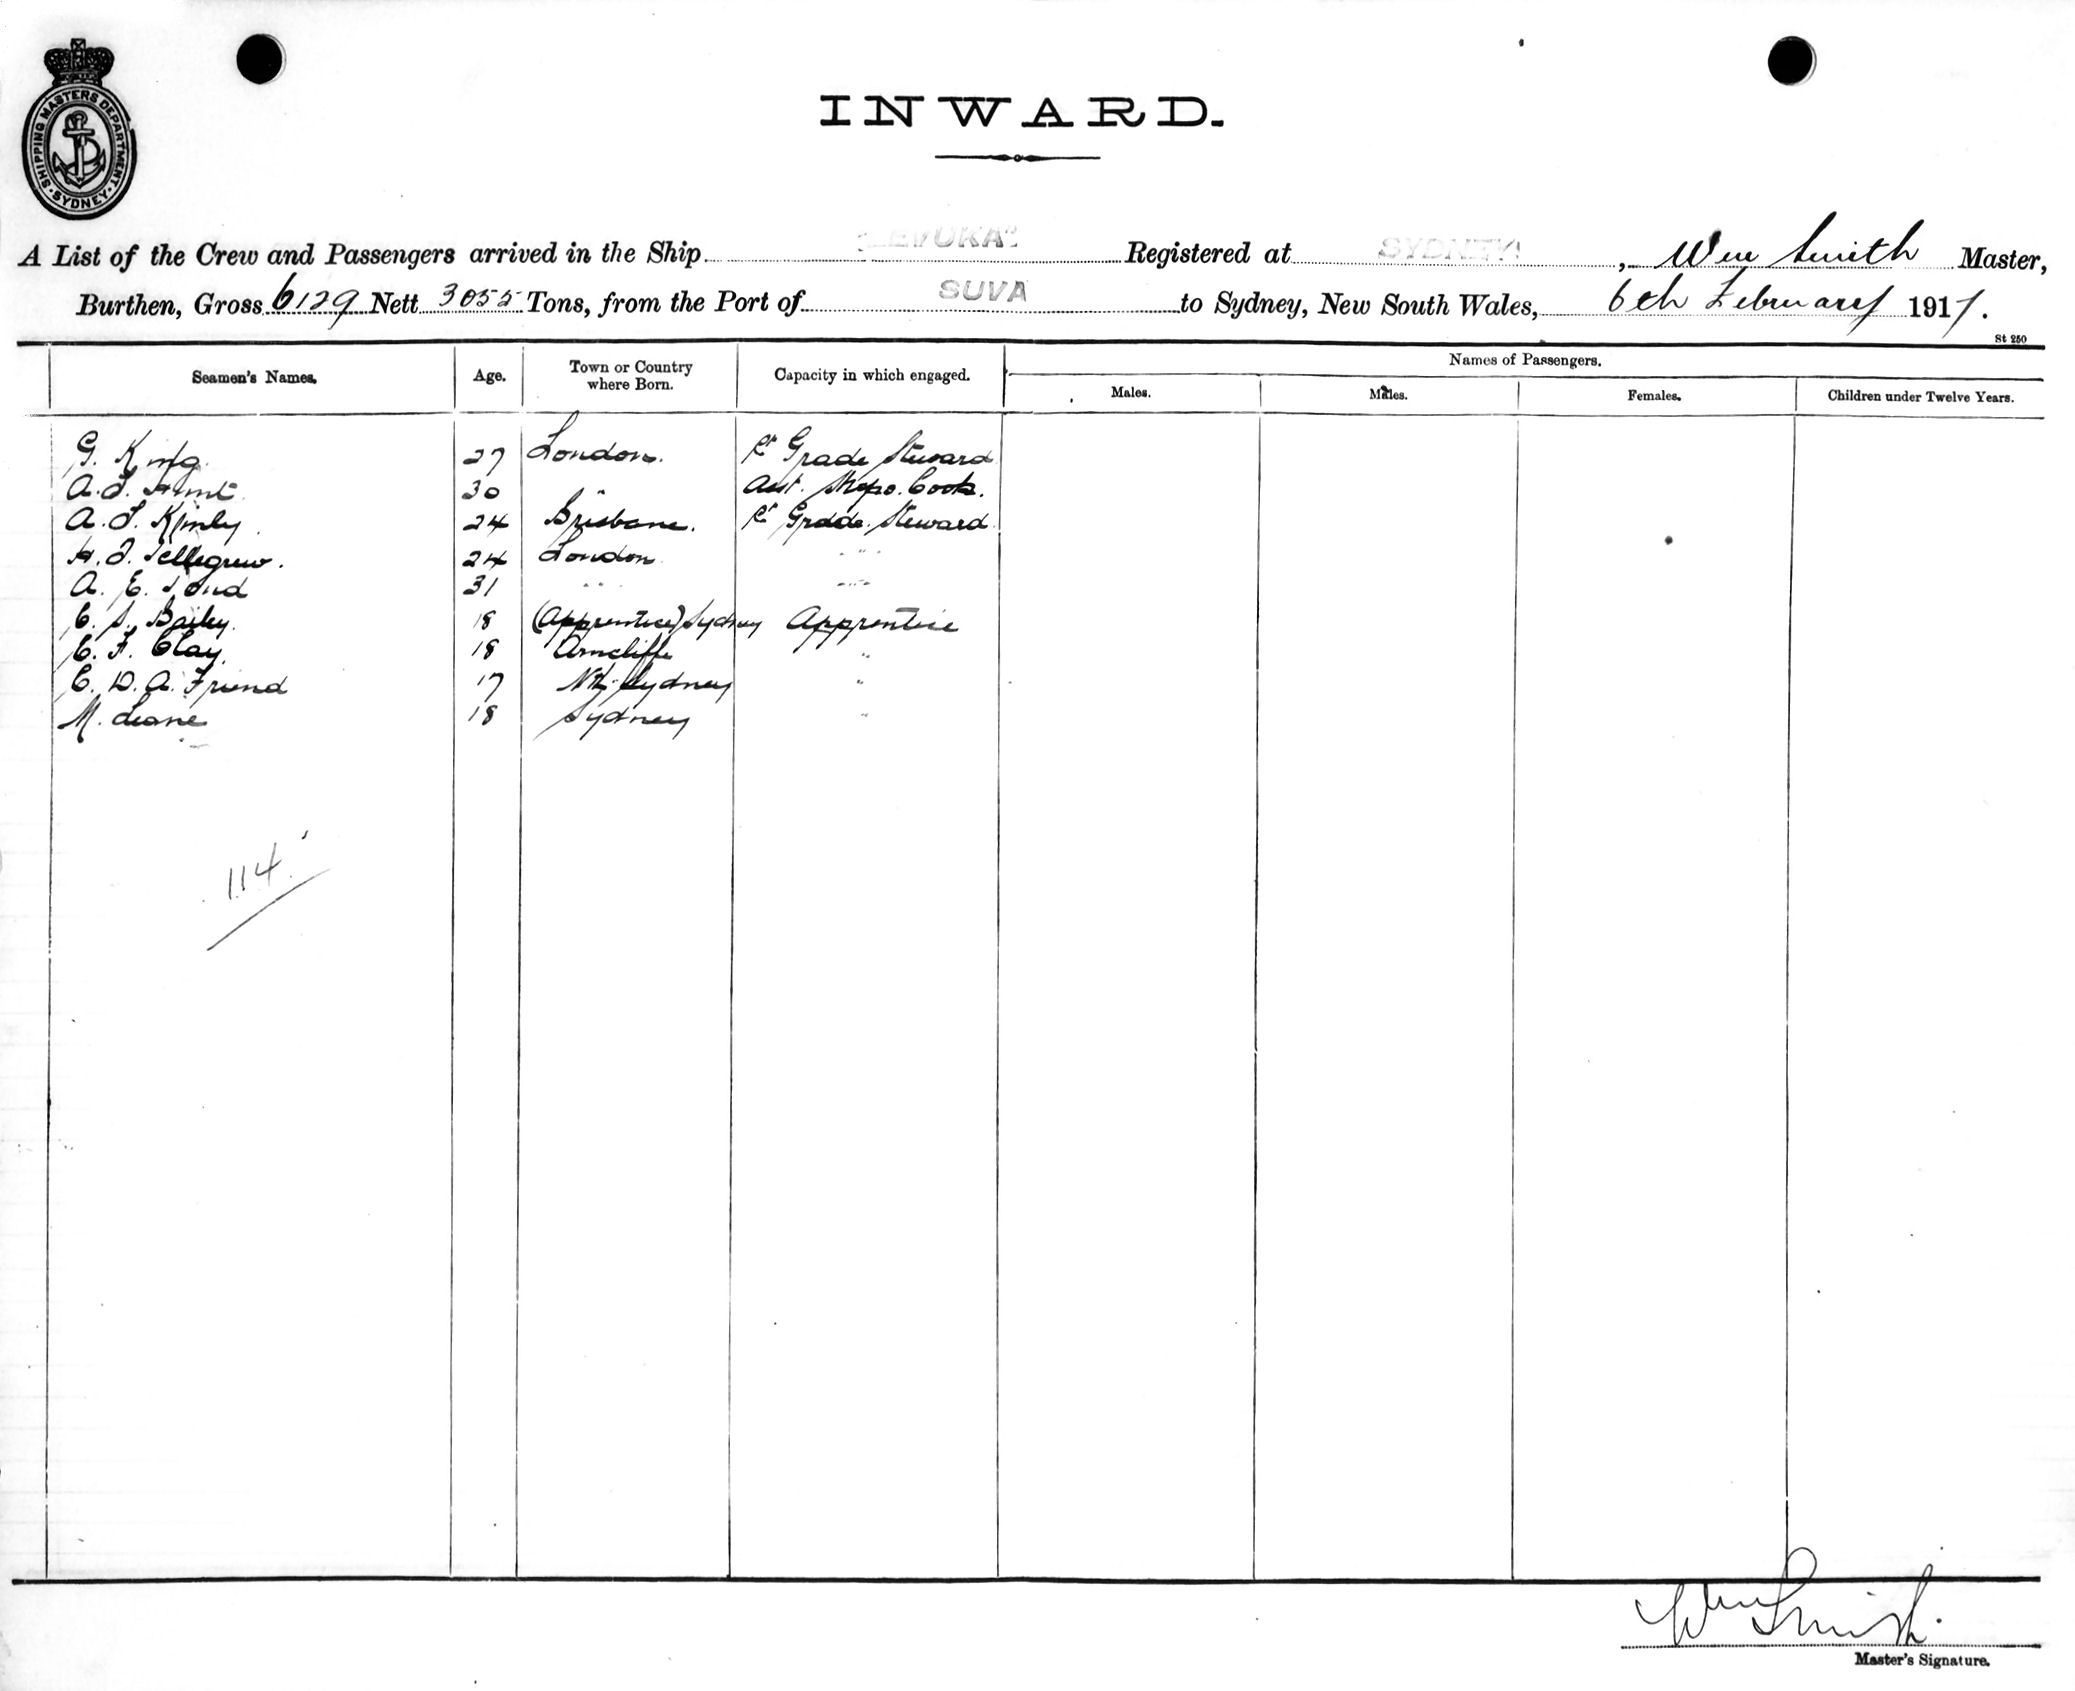 SHIPPING MASTERS DEPARTMENT
SYDNEY
INWARD.
A List of the Crew and Passengers arrived in the Ship LEVUKA Registered at SYDNEY, Wm Smith Master,
Burthen, Gross 6129 Nett 3055 Tons, from the Port of SUVA to Sydney, New South Wales, 6th February 1917.
St 250
Seamen's Names. Age. Town or Country where Born. Capacity in which engaged. Names of Passengers.
Males. Males. Females. Children under Twelve Years.
G. King. 27 London. Grade Steward
A. Hunt 30 " Asst. Cook.
A. 24 Brisbane. Grade Steward
H. 24 London " "
A. E. Pond 31 " " " "
C. S. Bailey. 18 (Apprentice) Sydney Apprentice
C. F. Clay 18 Arncliffe "
C. D. A. Friend 17 Nth Sydney "
M. Leane 18 Sydney "
114
Wm Smith.
Master's Signature.